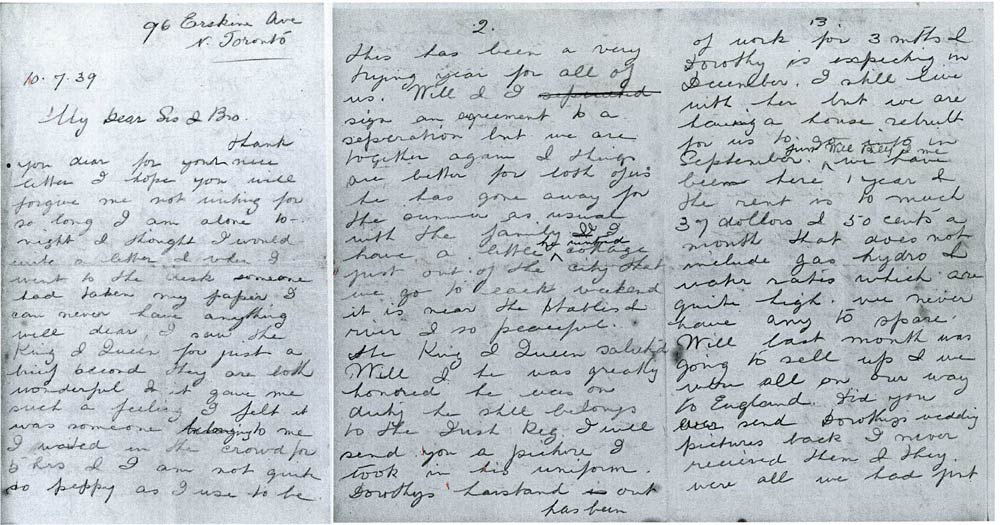 96 Erskine Ave
N. Toronto
10. 7. 39
My Dear Sis & Bro.
Thank
you dear for your nice
letter I hope you will
forgive me not writing for
so long I am alone to-
night & thought I would
write a letter & when I
went to the desk someone
had taken my paper I
can never have anything
will dear, I saw the
King & Queen for just a
brief second they are both
wonderful & it gave me
such a feeling I felt it
was someone belonging to me
I waited in the crowd for
5 hrs & I am not quite
so peppy as I use to be
2.
this has been a very
trying year for all of
us. Will & I
sign an agreement to a
seperation but we are
together again & things
are better for both of us
he has gone away for
the summer as usual
with the family & I
have a little he rented cottage
just out of the city that
we go to each weekend
it is near the stables &
river & so peaceful.
the King & Queen saluted
Will & he was greatly
honored he was on
duty he still belongs
to the Irish Reg. I will
send you a picture I
took in his uniform.
Dorothys husband is out
has been
3
of work for 3 mths &
Dorothy is expecting in
December. I still live
with her but we are
having a house rebuilt
for us to go into in
September. just Will Billy & me we have
been here 1 year &
the rent is to much
37 dollors & 50 cents a
month that does not
include gas hydro &
water rates which are
quite high. we never
have any to spare.
Will last month was
going to sell up & we
were all on our way
to England. Did you
ever send Dorothys wedding
pictures back I never
recieved them & they
were all we had just